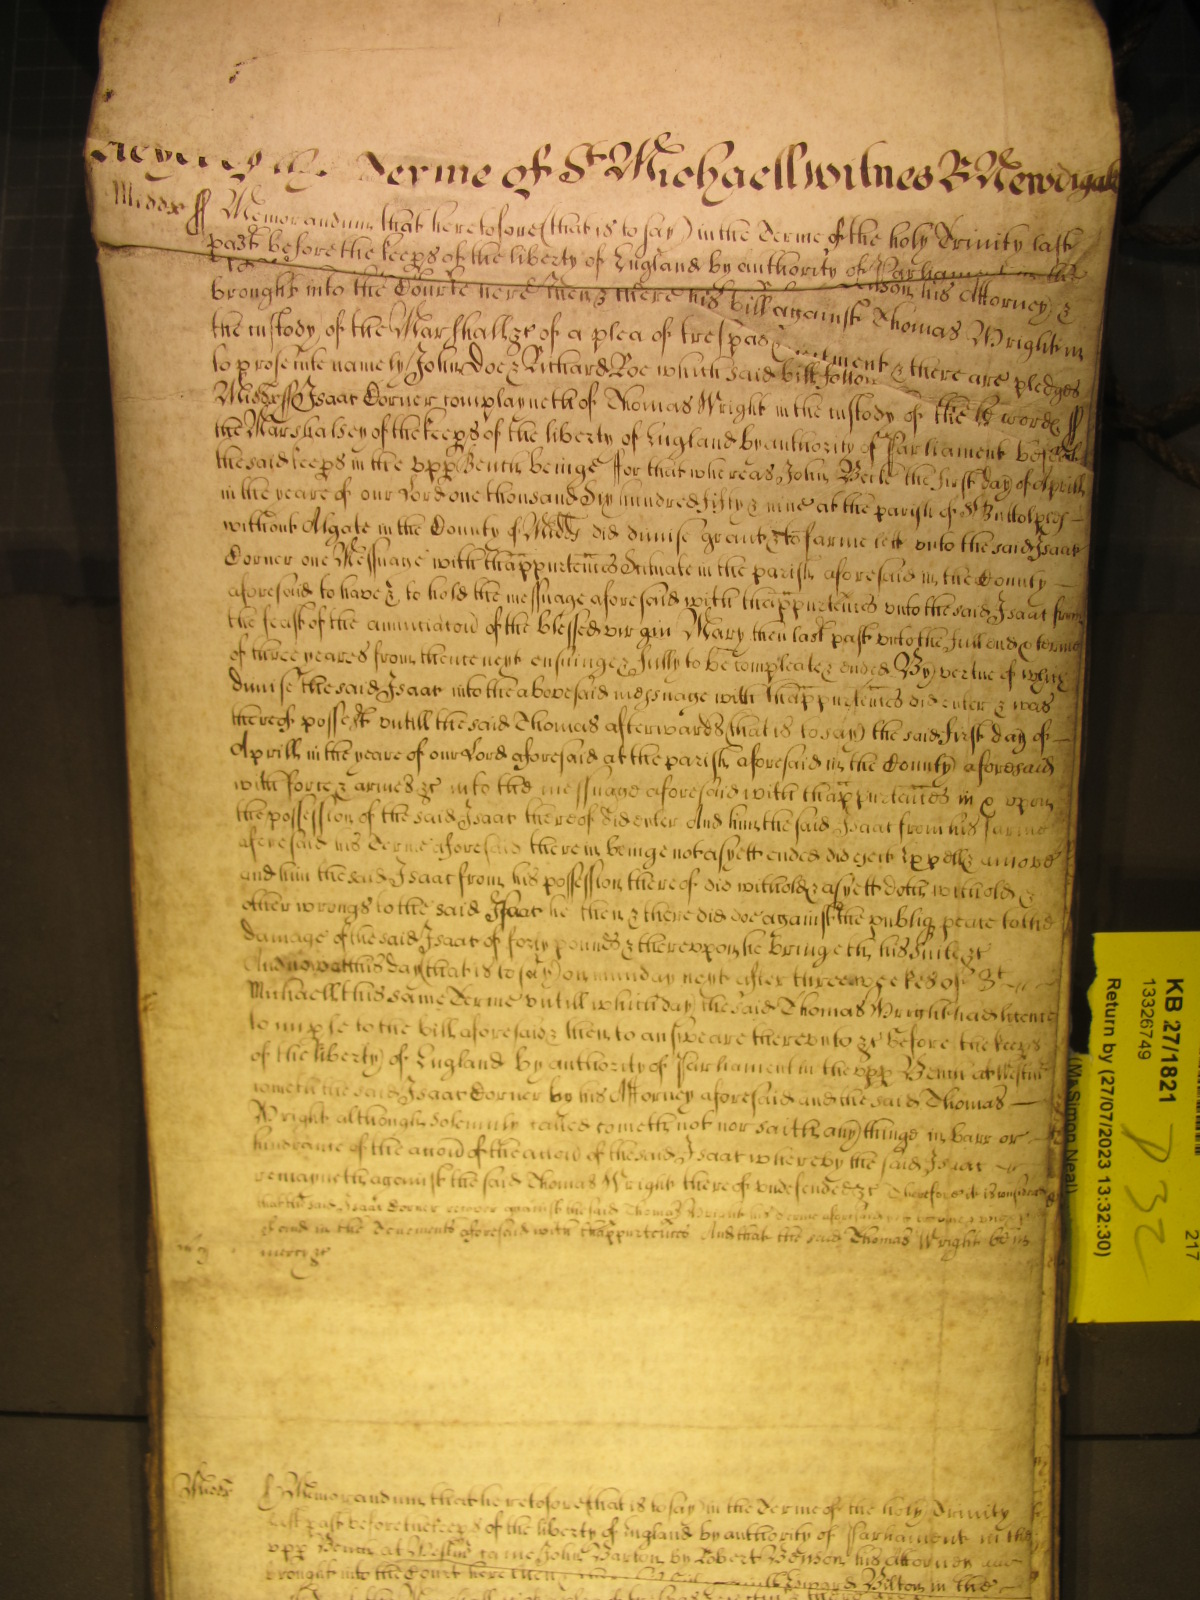 Terme of St Michaell witnes B Newdigate
Middx ss Memorandum that heretofore (that is to say) in the Terme of the holy Trinity last
past before the keeps of the liberty of England by authority of Parliament in the
brought into the Courte here then & there his bill against Thomas Wright in
the custody of the Marshall &c of a plea of trespas & there are pledges
to prosecute namely John Doe & Richard Roe which said bill in
Midds ss Isaac Corner complayneth of Thomas Wright in the custody of the words ss
the Marshalsey of the keeps of the liberty of England by authority of Parliament before
the said keeps in the upp Bench beinge For that whereas John the first day of Aprill
in the yeare of our Lord one thousand Six hundred fifty & nine at the parish of St Buttolphes
without Algate in the County of Midds did dimise grant & to farme lett unto the said Isaac
Corner one Messuage with thappurtences Scituate in the parish aforesaid in the County
aforesaid to have & to hold the messuage aforesaid with thappurtences unto the said Isaac from
the feast of the annunciacon of the blessed virgin Mary then last past unto the full end & terme
of three yeares from thence next ensuinge & fully to be compleate & ended By vertue of which
dimise the said Isaac into the abovesaid messuage with thappurtences did enter & was
thereof possest untill the said Thomas afterwards (that is to say) the said first day of
Aprill in the yeare of our Lord aforesaid at the parish aforesaid in the County aforesaid
with force & armes &c into the messuage aforesaid with thappurtences in & upon
the possession of the said Isaac thereof did enter And him the said Isaac from his farme
aforesaid his Terme aforesaid therein beinge not as yett ended did eject expell & amove
and him the said Isaac from his possession thereof did withold & as yett doth withold &
other wrongs to the said Isaac he then & there did doe against the publiq peace to the
damage of the said Isaac of forty pounds & thereupon he bringeth his suite &c
And now att this day (that is to say) on munday next after three weekes of St
Michaell this same Terme untill which day the said Thomas Wright had licence
to imparle to the bill aforesaid & then to answeare thereunto &c before the keeps
of the liberty of England by authority of Parliament in the upp Bench at Westm
cometh the said Isaac Corner by his Attorney aforesaid and the said Thomas
Wright although Solemnly called cometh not nor saith any thinge in barr or
hindrance of the accon of the said Isaac whereby the said Isaac
remayneth against the said Thomas Wright thereof undefended &c Therefore it is considered
that the said Isaac Corner recover against the said Thomas Wright his terme aforesaid yet to come
of and in the Tenements aforesaid with thappurtences And that the said Thomas Wright be in
mercy &c
Memorandum that heretofore (that is to say) in the Terme of the holy Trinity
last past before the keeps of the liberty of England by authority of Parliament in the
upp Bench at Westm came John Barton by Robert Benson his Attorney and
brought into the Court here then Edward Bilton in the
KB 27/1821
13326749
Return by (27/07/2023 13:32:30)
(Mr Simon Neal)
217
P 32